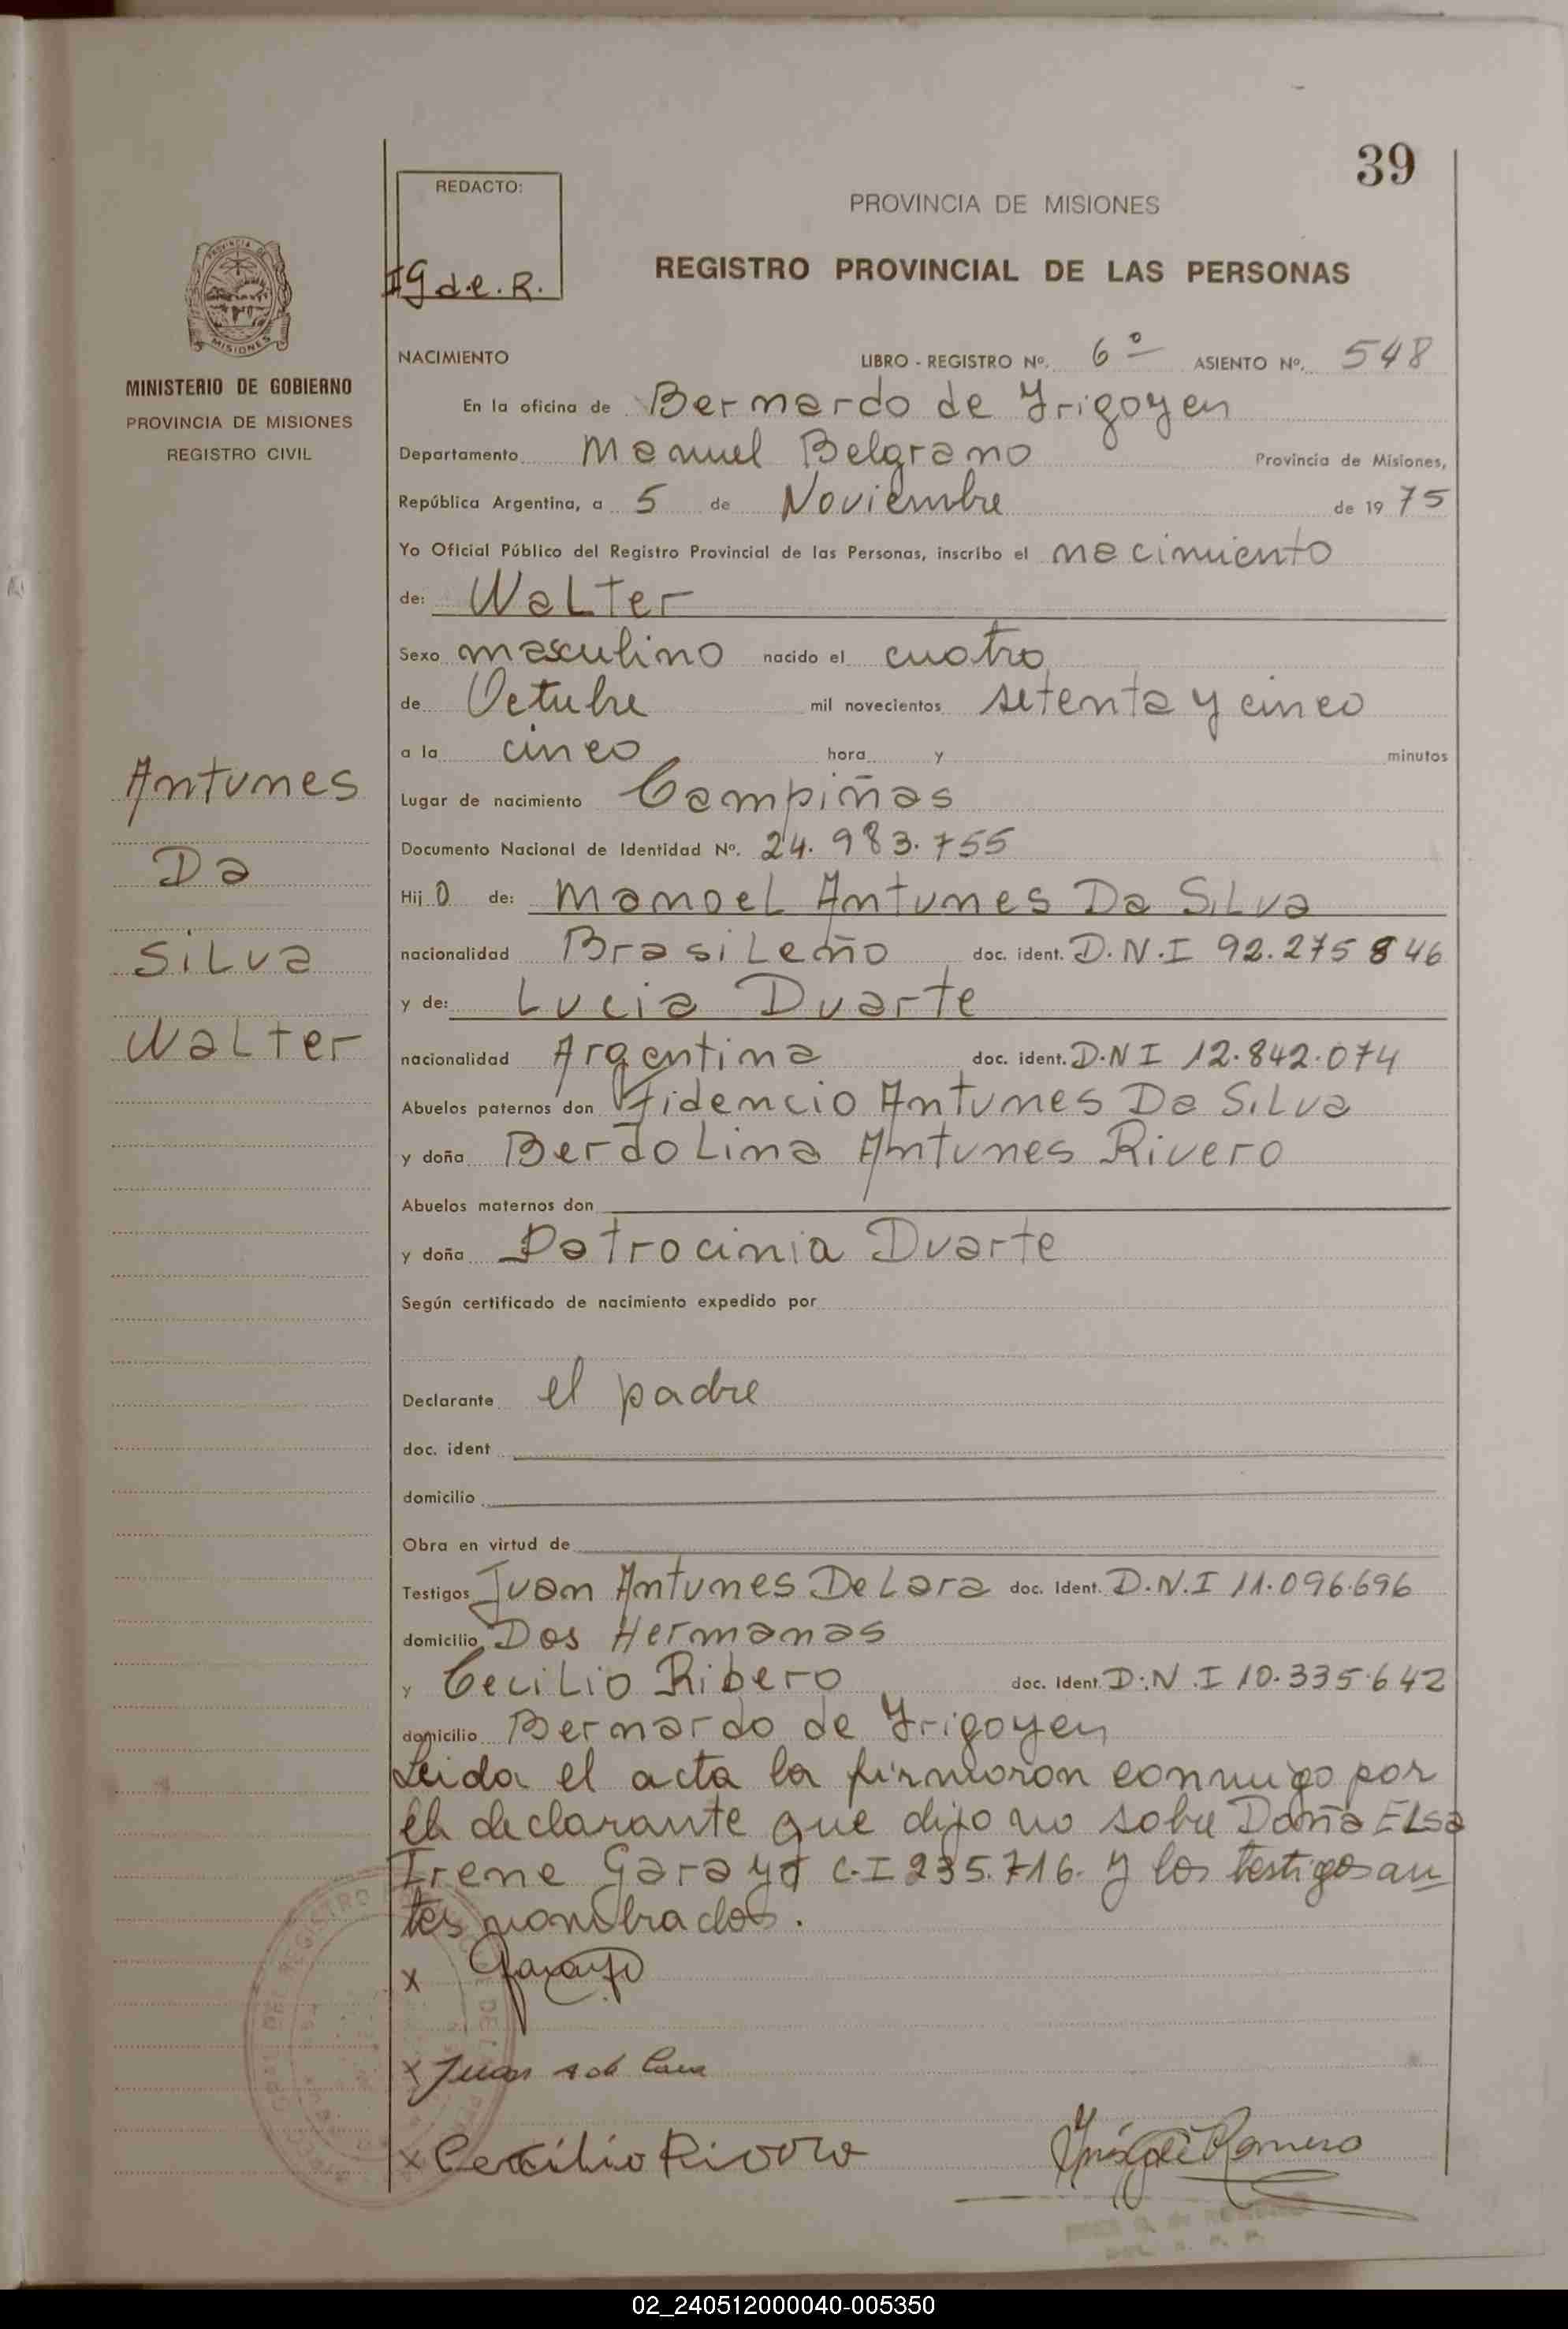 39
REDACTO:
PROVINCIA DE MISIONES
REGISTRO PROVINCIAL DE LAS PERSONAS
IG de. R.
MISIONES
MINISTERIO DE GOBIERNO
PROVINCIA DE MISIONES
REGISTRO CIVIL
Antunes
Da
Silva
Walter
NACIMIENTO LIBRO - REGISTRO Nº. 6º ASIENTO Nº. 548
En la oficina de Bernardo de Yrigoyen
Departamento Manuel Belgrano Provincia de Misiones,
República Argentina, a 5 de Noviembre de 1975
Yo Oficial Público del Registro Provincial de las Personas, inscribo el nacimiento
de: Walter
Sexo masculino nacido el cuatro
de Octubre mil novecientos setenta y cinco
a la cinco hora y minutos
Lugar de nacimiento Campiñas
Documento Nacional de Identidad Nº. 24.983.755
Hijo de: Manoel Antunes Da Silva
nacionalidad Brasileño doc. ident. D.N.I 92.275846
y de: Lucia Duarte
nacionalidad Argentina doc. ident. D.N I 12.842.074
Abuelos paternos don Fidencio Antunes Da Silva
y doña Berdolina Antunes Rivero
Abuelos maternos don
y doña Patrocinia Duarte
Según certificado de nacimiento expedido por
Declarante el padre
doc. ident
domicilio
Obra en virtud de
Testigos Juan Antunes De Lara doc. Ident. D.N.I 11.096.696
domicilio Dos Hermanas
y Cecilio Ribero doc. Ident. D.N.I 10.335.642
domicilio Bernardo de Yrigoyen
Leida el acta la firmaron conmigo por
el declarante que dijo no sabe Doña Elsa
Irene Garayo C.I 235.716. y los testigos an
tes nombrados.
x Garayo
x Juan A de Lara
x Cecilio Rivero Inés G de Romero
02_240512000040-005350